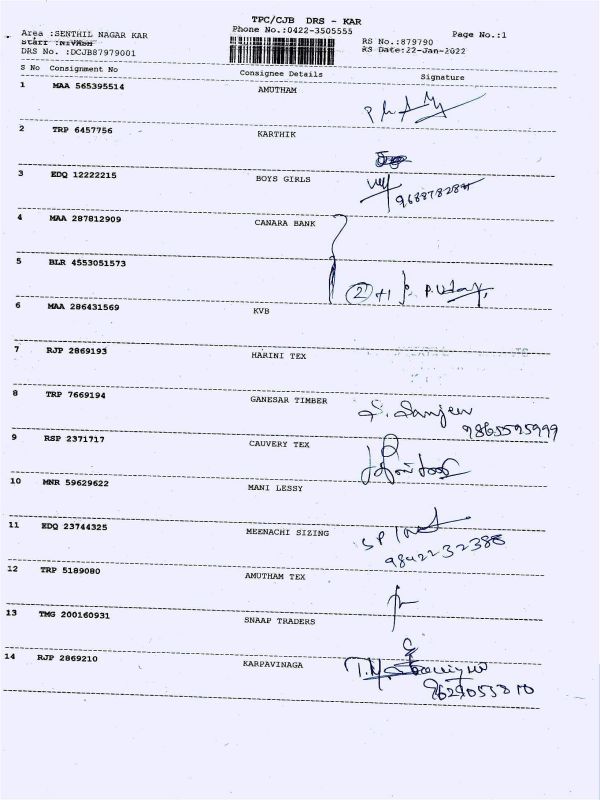 TPC/CJB DRS - KAR
Area :SENTHIL NAGAR KAR Phone No.:0422-3505555 Page No.:1
RS No.:879790
DRS No. :DCJB87979001 RS Date:22-Jan-2022
S No Consignment No Consignee Details Signature
1 MAA 565395514 AMUTHAM
2 TRP 6457756 KARTHIK
3 EDQ 12222215 BOYS GIRLS
4 MAA 287812909 CANARA BANK
5 BLR 4553051573
2 +1 P. Uday
6 MAA 286431569 KVB
7 RJP 2869193 HARINI TEX
8 TRP 7669194 GANESAR TIMBER S. Sanjeev
9865595999
9 RSP 2371717 CAUVERY TEX
10 MNR 59629622 MANI LESSY
11 EDQ 23744325 MEENACHI SIZING
9842232388
12 TRP 5189080 AMUTHAM TEX
13 TMG 200160931 SNAAP TRADERS
14 RJP 2869210 KARPAVINAGA